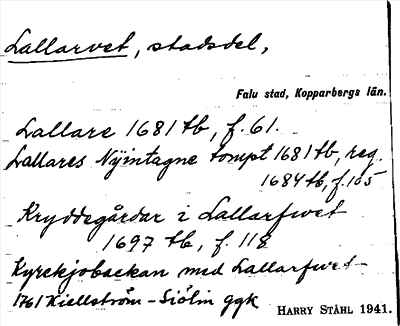 Lallarvet, stadsdel,
Falu stad, Kopparbergs län.
Lallare 1681 tb, f. 61.
Lallares Nyintagne tompt 1681 tb, reg.
1684 tb, f. 105
Kryddegårdar i Lallarfwet
1697 tb, f. 118
Kyrckjobackan med Lallarfwet
1761 Kiellström - Siölin ggk
HARRY STÅHL 1941.